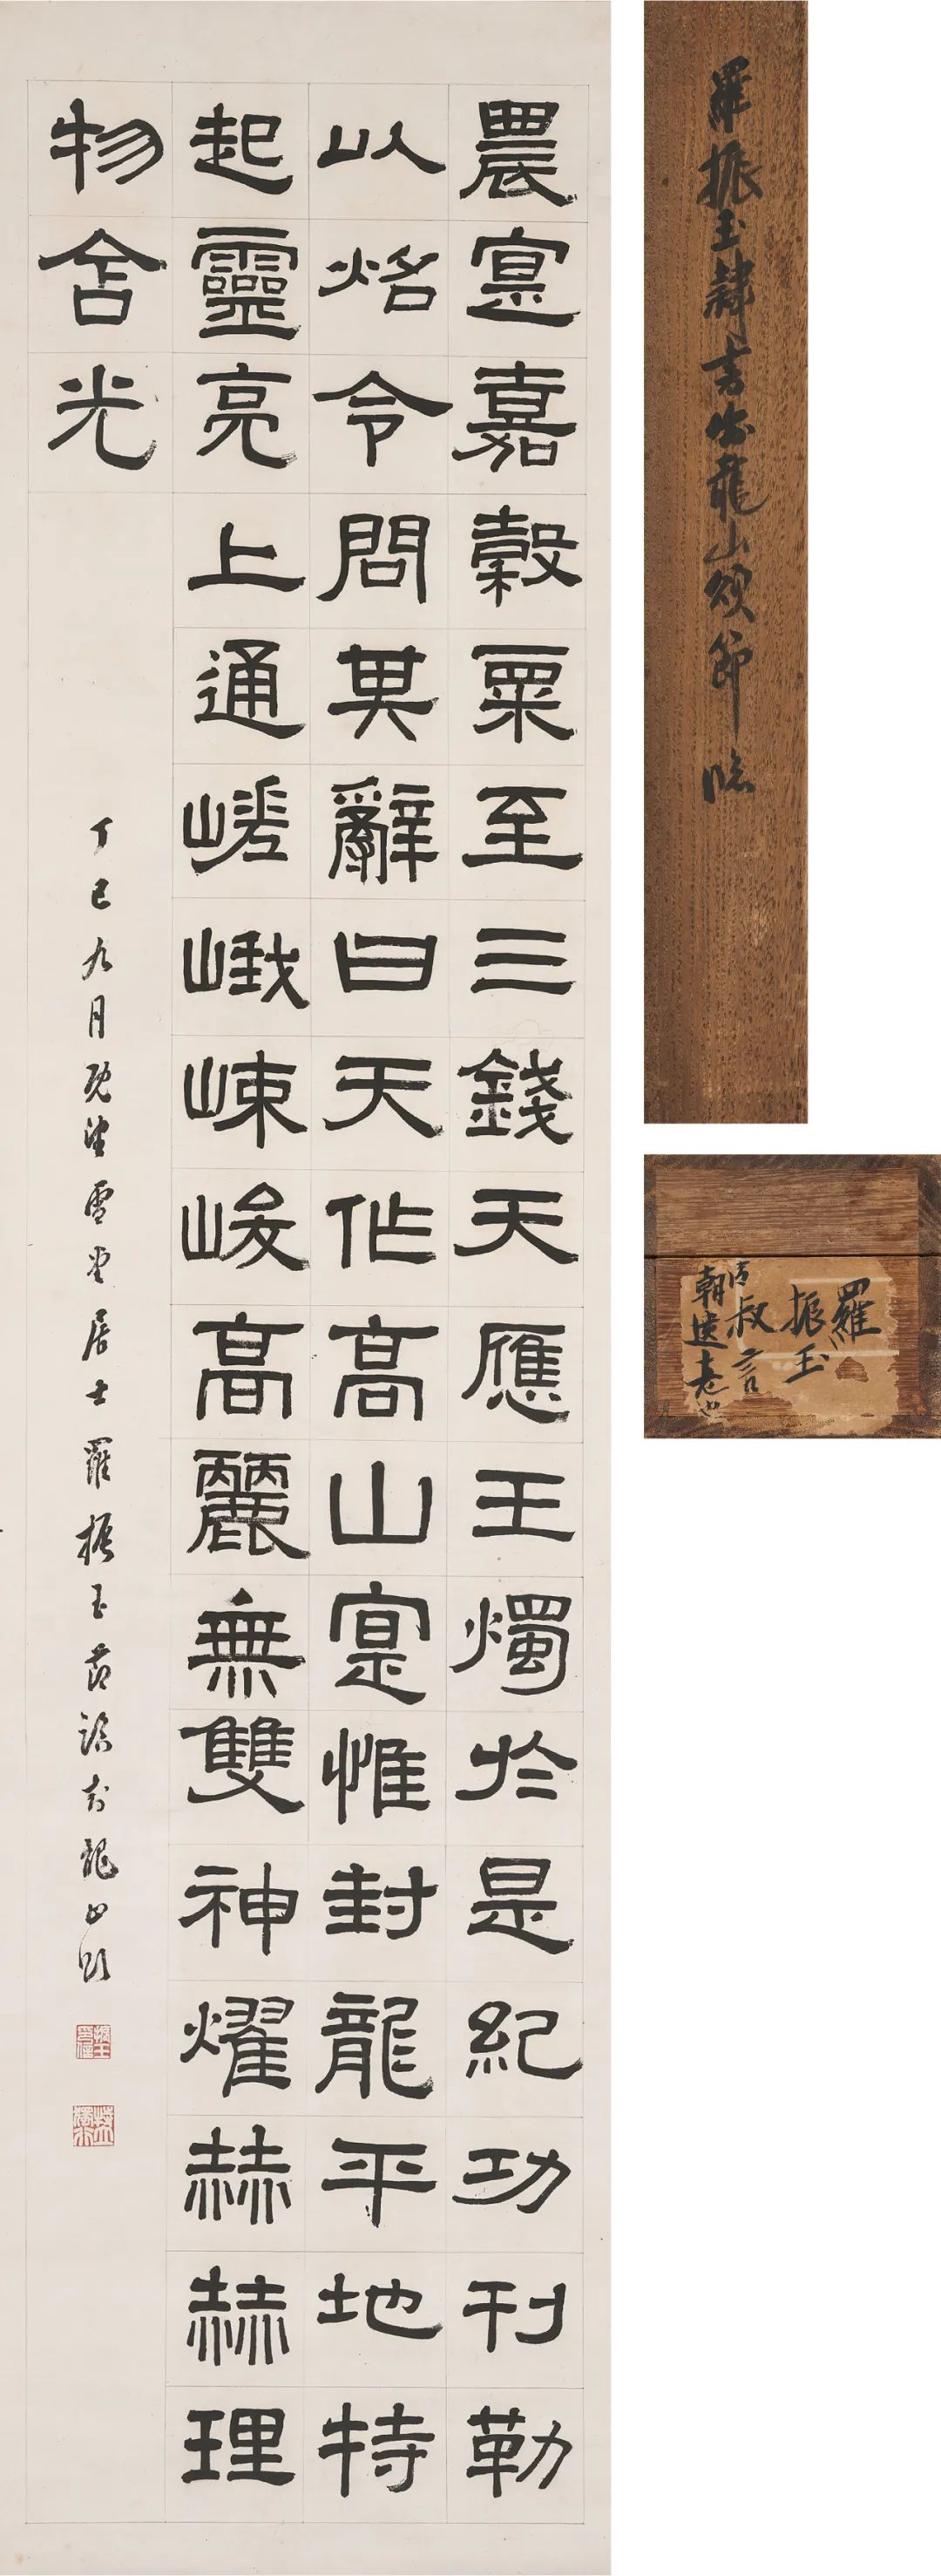 農寔嘉穀粟至三錢天應王燭於是紀功刊勒
以炤令問其辭曰天作高山寔惟封龍平地特
起靈亮上通嵯峨崠峻高麗無雙神燿赫赫理
物含光
丁巳九月既望雪堂居士羅振玉節臨封龍山頌
羅振玉隸書封龍山頌節臨
羅振玉
叔言
清朝遺老也